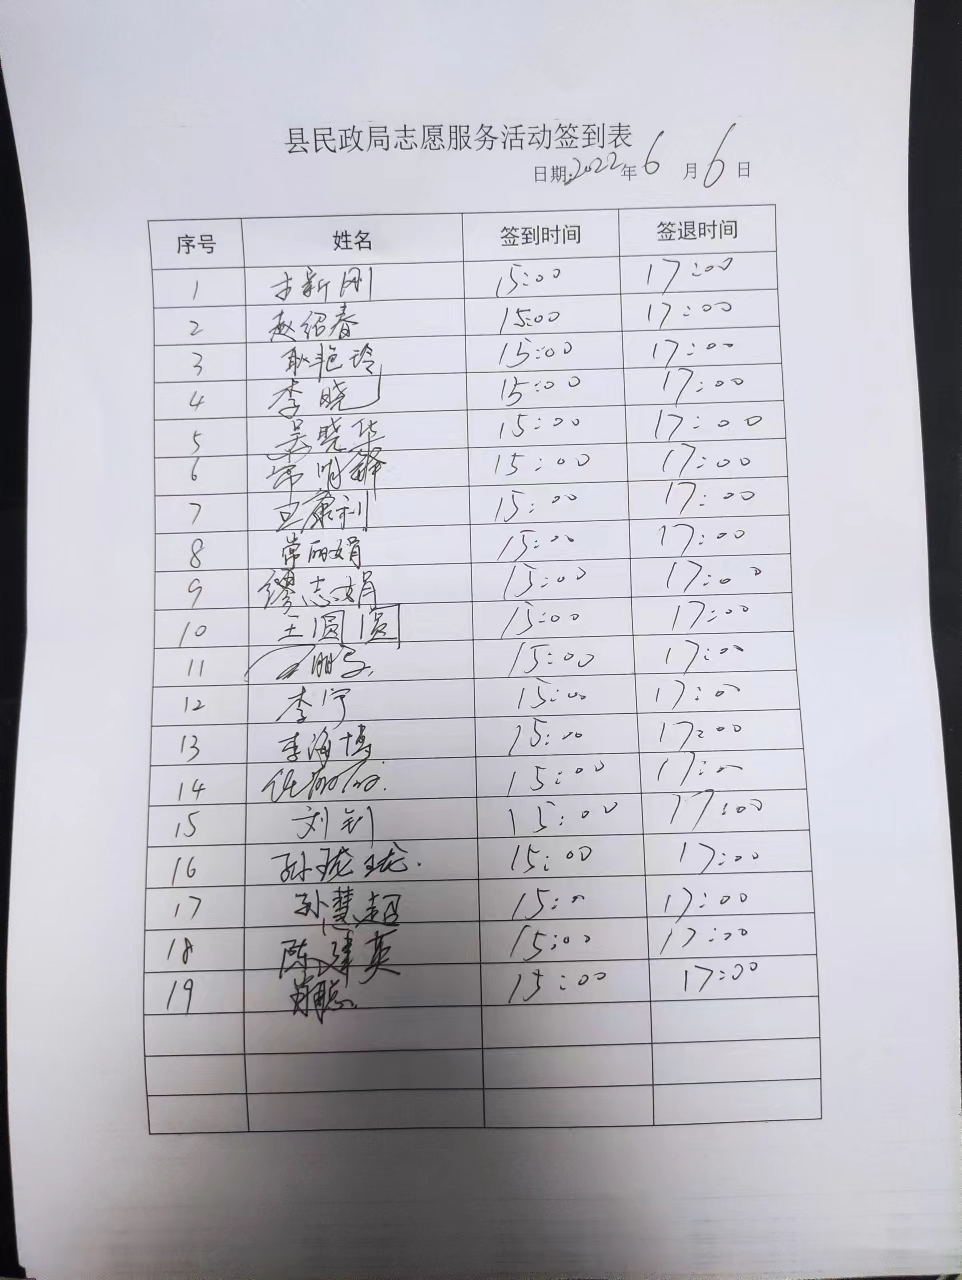 县民政局志愿服务活动签到表
日期:2022年6月6日
序号 姓名 签到时间 签退时间
1 新刚 15:00 17:00
2 赵绍春 15:00 17:00
3 耿艳玲 15:00 17:00
4 李晓 15:00 17:00
5 吴晓华 15:00 17:00
6 常明 15:00 17:00
7 卫康利 15:00 17:00
8 常丽娟 15:00 17:00
9 缪志娟 15:00 17:00
10 王圆圆 15:00 17:00
11 15:00 17:00
12 李宁 15:00 17:00
13 李海博 15:00 17:00
14 任丽丽 15:00 17:00
15 刘钊 15:00 17:00
16 孙珑珑 15:00 17:00
17 孙慧超 15:00 17:00
18 陈建英 15:00 17:00
19 肖聪 15:00 17:00